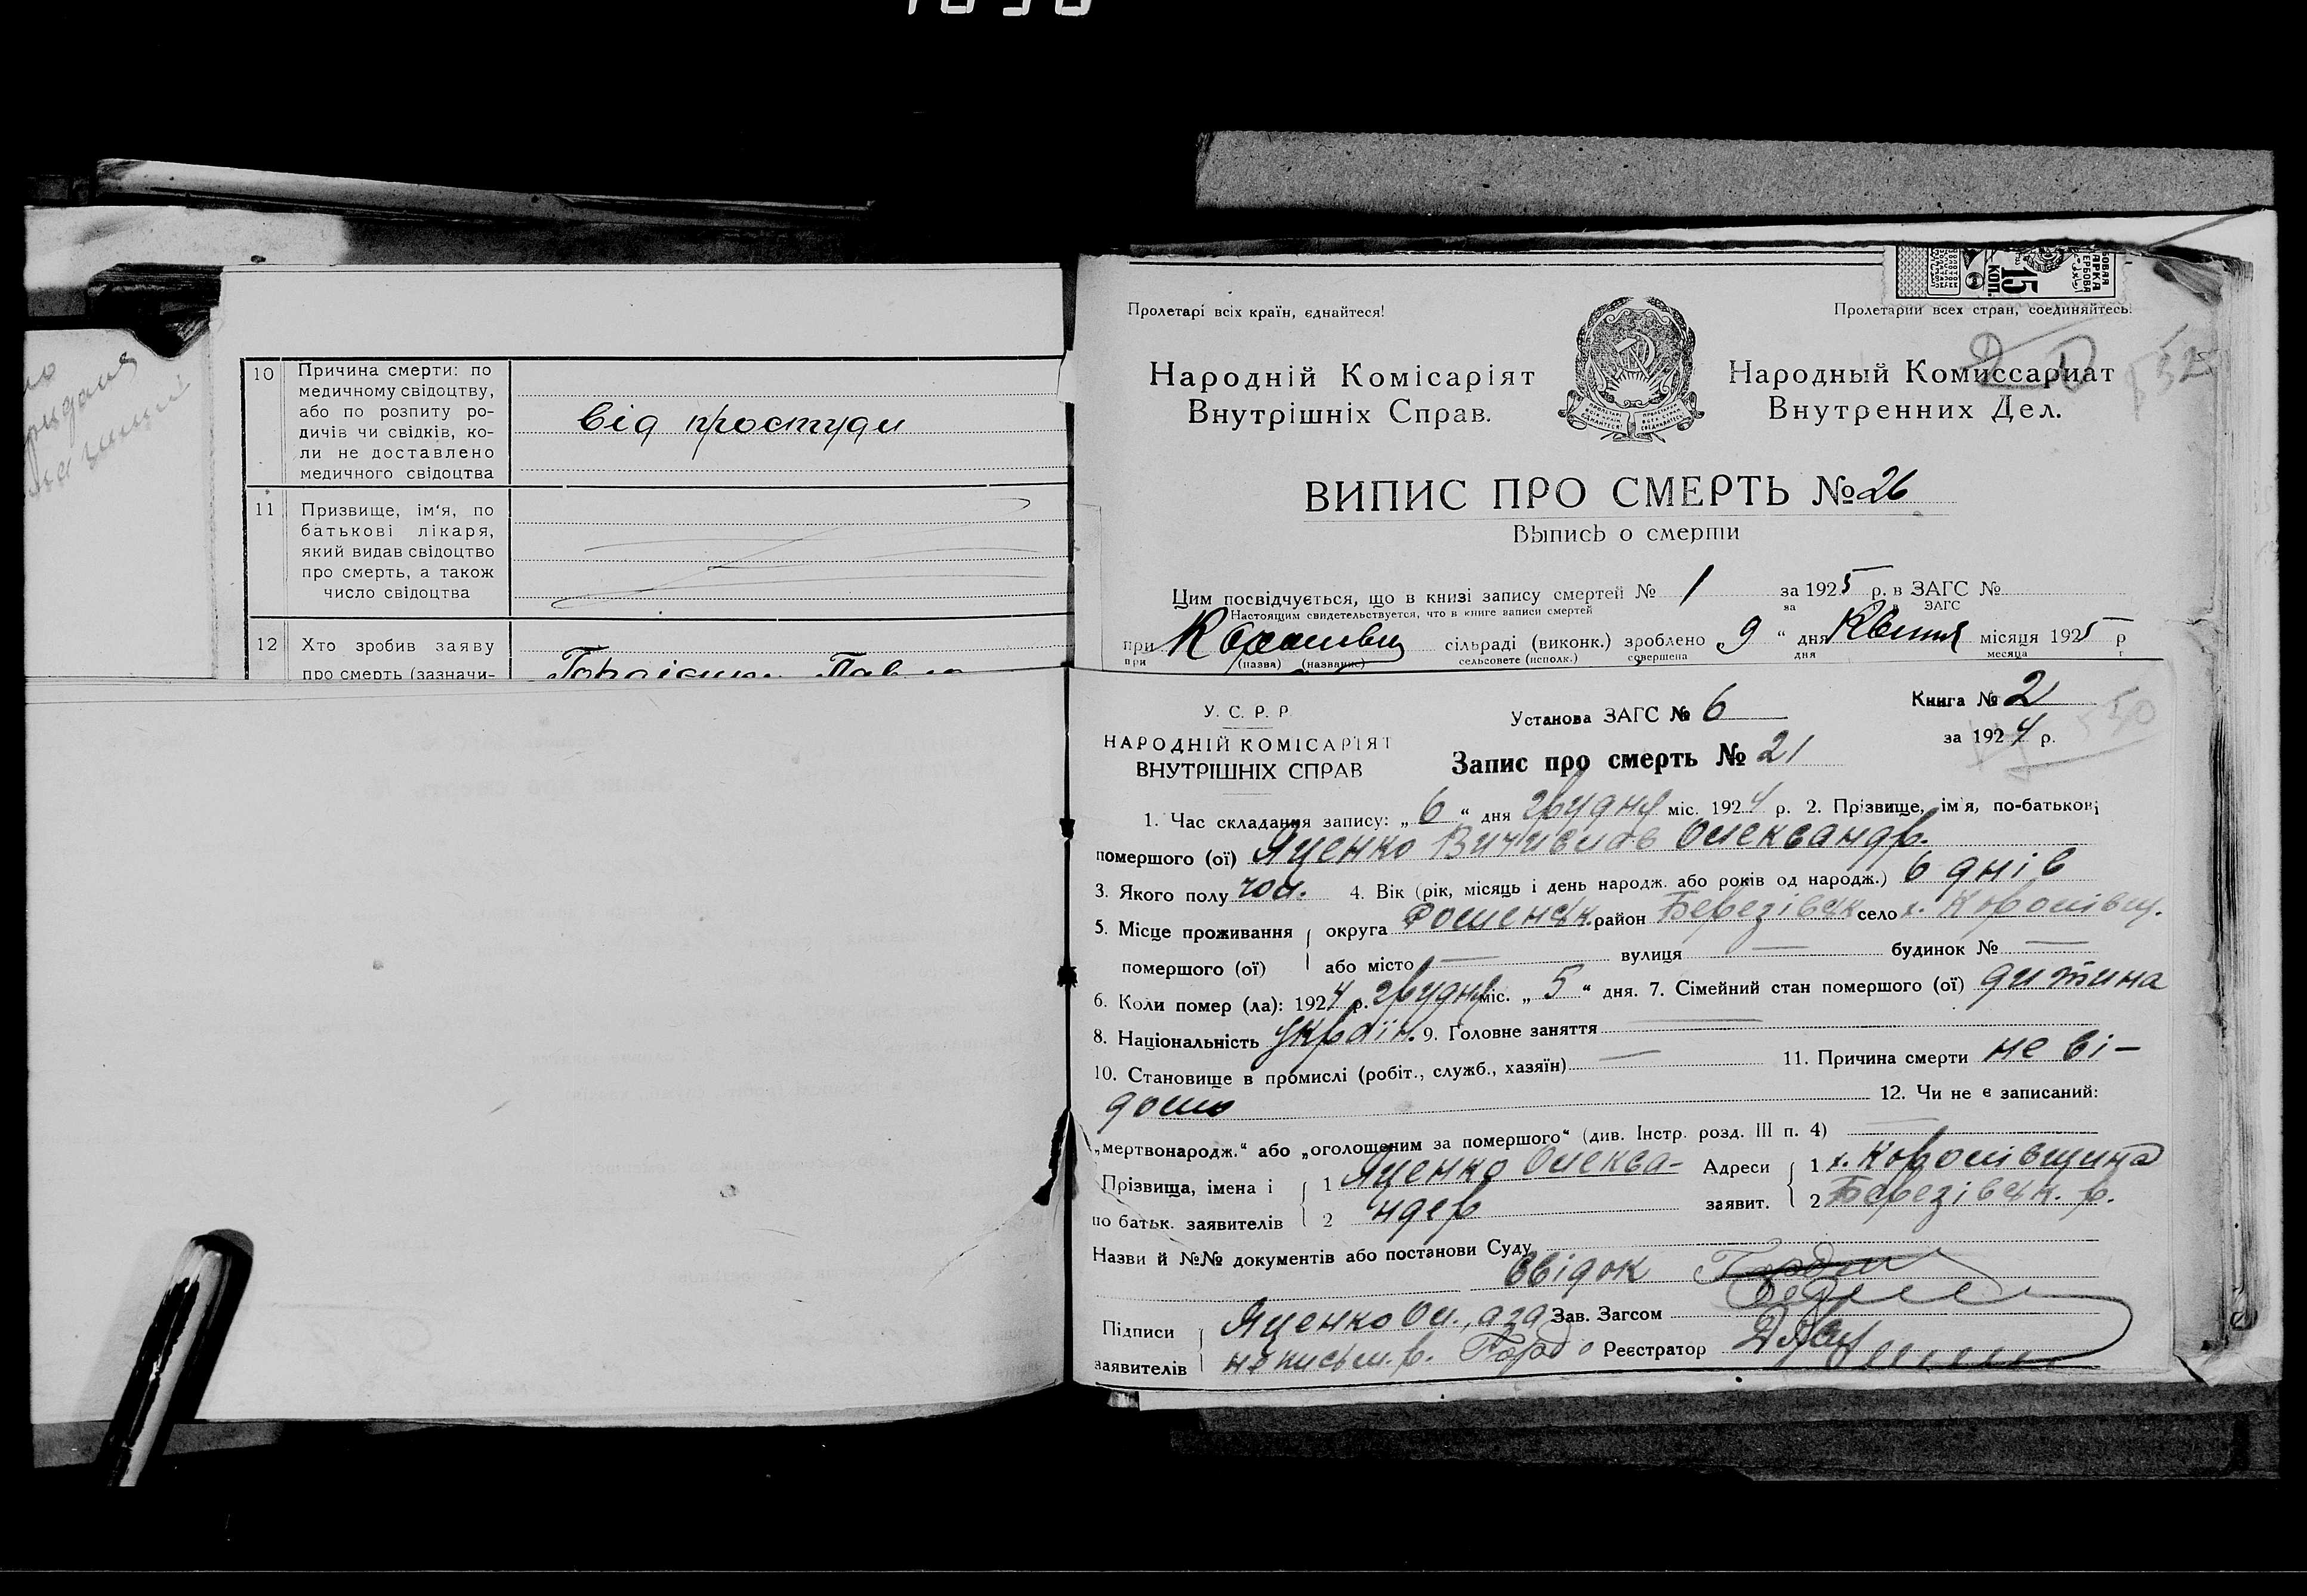 10 Причина смерти: по
медичному свідоцтву,
або по розпиту ро-
дичів чи свідків, ко-
ли не доставлено
медичного свідоцтва
від простуди
11 Призвище, ім'я, по
батькові лікаря,
який видав свідоцтво
про смерть, а також
число свідоцтва
12 Хто зробив заяву
про смерть (зазначи-
Пролетарі всіх країн, єднайтеся!
Пролетарии всех стран, соединяйтесь!
15 КОП.
Народній Комісаріят
Внутрішніх Справ.
Народный Комиссариат
Внутренних Дел.
ВИПИС ПРО СМЕРТЬ № 26
Выпись о смерти
Цим посвідчується, що в книзі запису смертей № 1 за 1925 р. в ЗАГС №
Настоящим свидетельствуется, что в книге записи смертей за ЗАГС
при сільраді (виконк.) зроблено „ 9 “ дня Квітня місяця 1925 р
при (назва) (название) сельсовете (исполк.) совершена дня месяца г
У. С. Р. Р.
НАРОДНІЙ КОМІСАРІЯТ
ВНУТРІШНІХ СПРАВ
Установа ЗАГС № 6
Книга № 2
за 1924 р.
550
Запис про смерть № 21
1. Час складання запису: „ 6 “ дня грудня міс. 1924 р. 2. Прізвище, ім'я, по-батькові
помершого (ої) Яценко Олександр.
3. Якого полу чол. 4. Вік (рік, місяць і день народж. або років од народж.) 6 днів
5. Місце проживання округа Роменськ. район Березівськ село х. Королівщ.
помершого (ої) або місто — вулиця — будинок № —
6. Коли помер (ла): 1924 р. грудня міс. „ 5 “ дня. 7. Сімейний стан помершого (ої) дитина
8. Національність україн. 9. Головне заняття —
10. Становище в промислі (робіт., служб., хазяїн) — 11. Причина смерти не ві-
домо 12. Чи не є записаний:
„мертвонародж.“ або „оголошеним за помершого“ (див. Інстр. розд. III п. 4) —
Прізвища, імена і 1 Яценко Олекса- Адреси 1 х. Королівщина
по батьк. заявителів 2 ндер заявит. 2 Березівськ. р.
Назви й №№ документів або постанови Суду
Свідок
Підписи Яценко Ол., а за Зав. Загсом
заявителів неписьм. р. Реєстратор